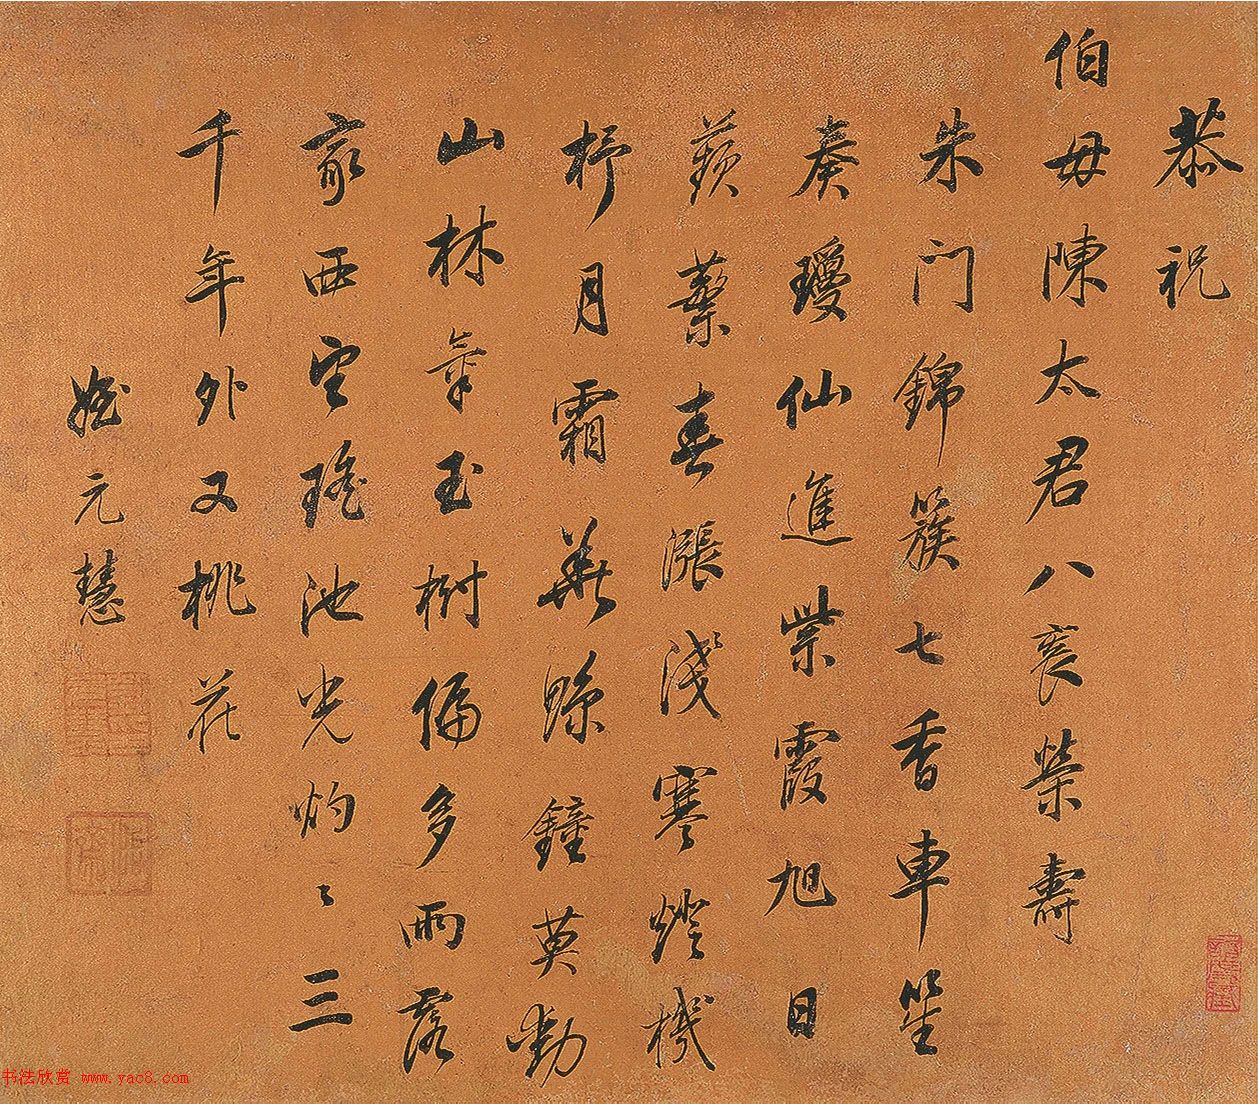 恭祝
伯母陳太君八袠榮壽
朱門錦簇七香車笙
奏瓊仙進紫霞旭日
蘋蘩春漲淺寒燈機
杼月霜華鯨鐘莫動
山林氣玉樹偏多雨露
家西望瑤池光灼〻三
千年外又桃花
姪元慧
书法欣赏 www.yac8.com